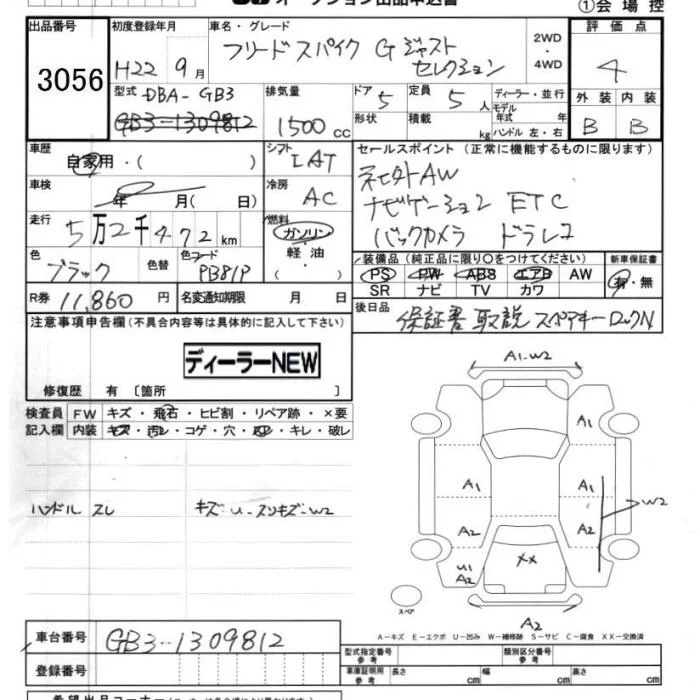 オークション出品申込書
①会場控
出品番号
3056
初度登録年月
H22 9月
車名・グレード
フリードスパイク G ジャスト
セレクション
2WD
・
4WD
評価点
4
型式
DBA-GB3
GB3-1309812
排気量
1500 cc
ドア
5
形状
定員
5 人
積載
kg
ディーラー・並行
モデル
年式 年
ハンドル 左・右
外装 内装
B B
車歴
自家用・( )
シフト
IAT
セールスポイント (正常に機能するものに限ります)
社外AW
ナビゲーション ETC
バックカメラ ドラレコ
車検
年 月( 日)
冷房
AC
走行
5万2千472km
燃料
ガソリン
・
軽油
・
( )
色
ブラック
色替
色コード
PB81P
装備品 (純正品に限り○をつけてください)
PS PW ABS エアB AW
SR ナビ TV カワ
新車保証書
有・無
R券 11,860 円
名変通知期限 月 日
後日品
保証書 取説 スペアキー ロックN
注意事項申告欄 (不具合内容等は具体的に記入して下さい)
ディーラーNEW
修復歴 有 〔箇所 〕
検査員
記入欄
FW キズ・飛石・ヒビ割・リペア跡・×要
内装 キズ・汚レ・コゲ・穴・スレ・キレ・破レ
ハンドル スレ
キズ・U・スリキズ・W2
A1.W2
A1
A1 A1
W2
A2 A2
U1
A2
XX
スペア
A2
A-キズ E-エクボ U-凹み W-補修跡 S-サビ C-腐食 XX-交換済
車台番号
GB3-1309812
登録番号
型式指定番号
参考
類別区分番号
参考
車庫証明用
参考
長さ cm
幅 cm
高さ cm